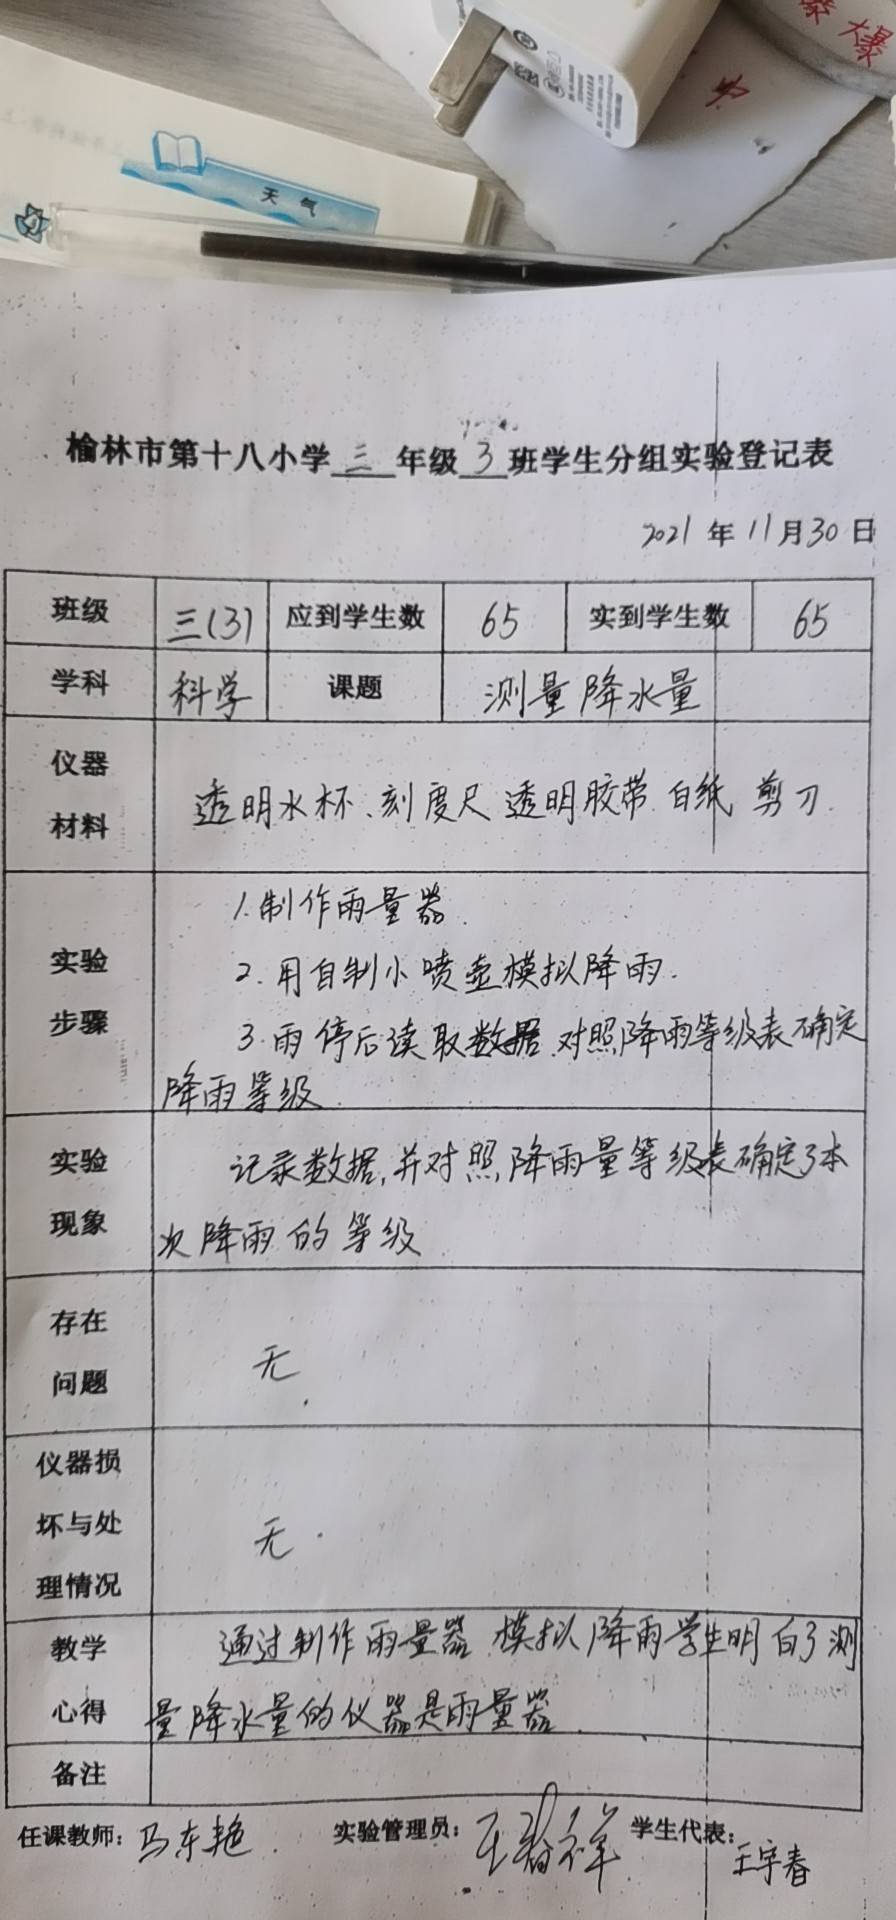 天气
榆林市第十八小学三年级3班学生分组实验登记表
2021年11月30日
班级 三(3) 应到学生数 65 实到学生数 65
学科 科学 课题 测量降水量
仪器
材料
透明水杯、刻度尺 透明胶带 白纸 剪刀
实验
步骤
1.制作雨量器.
2.用自制小喷壶模拟降雨.
3.雨停后读取数据.对照降雨等级表确定
降雨等级
实验
现象
记录数据,并对照降雨量等级表确定了本
次降雨的等级
存在
问题
无
仪器损
坏与处
理情况
无.
教学
心得
通过制作雨量器 模拟降雨学生明白了测
量降水量的仪器是雨量器.
备注
任课教师:马东艳 实验管理员: 学生代表:王宇春